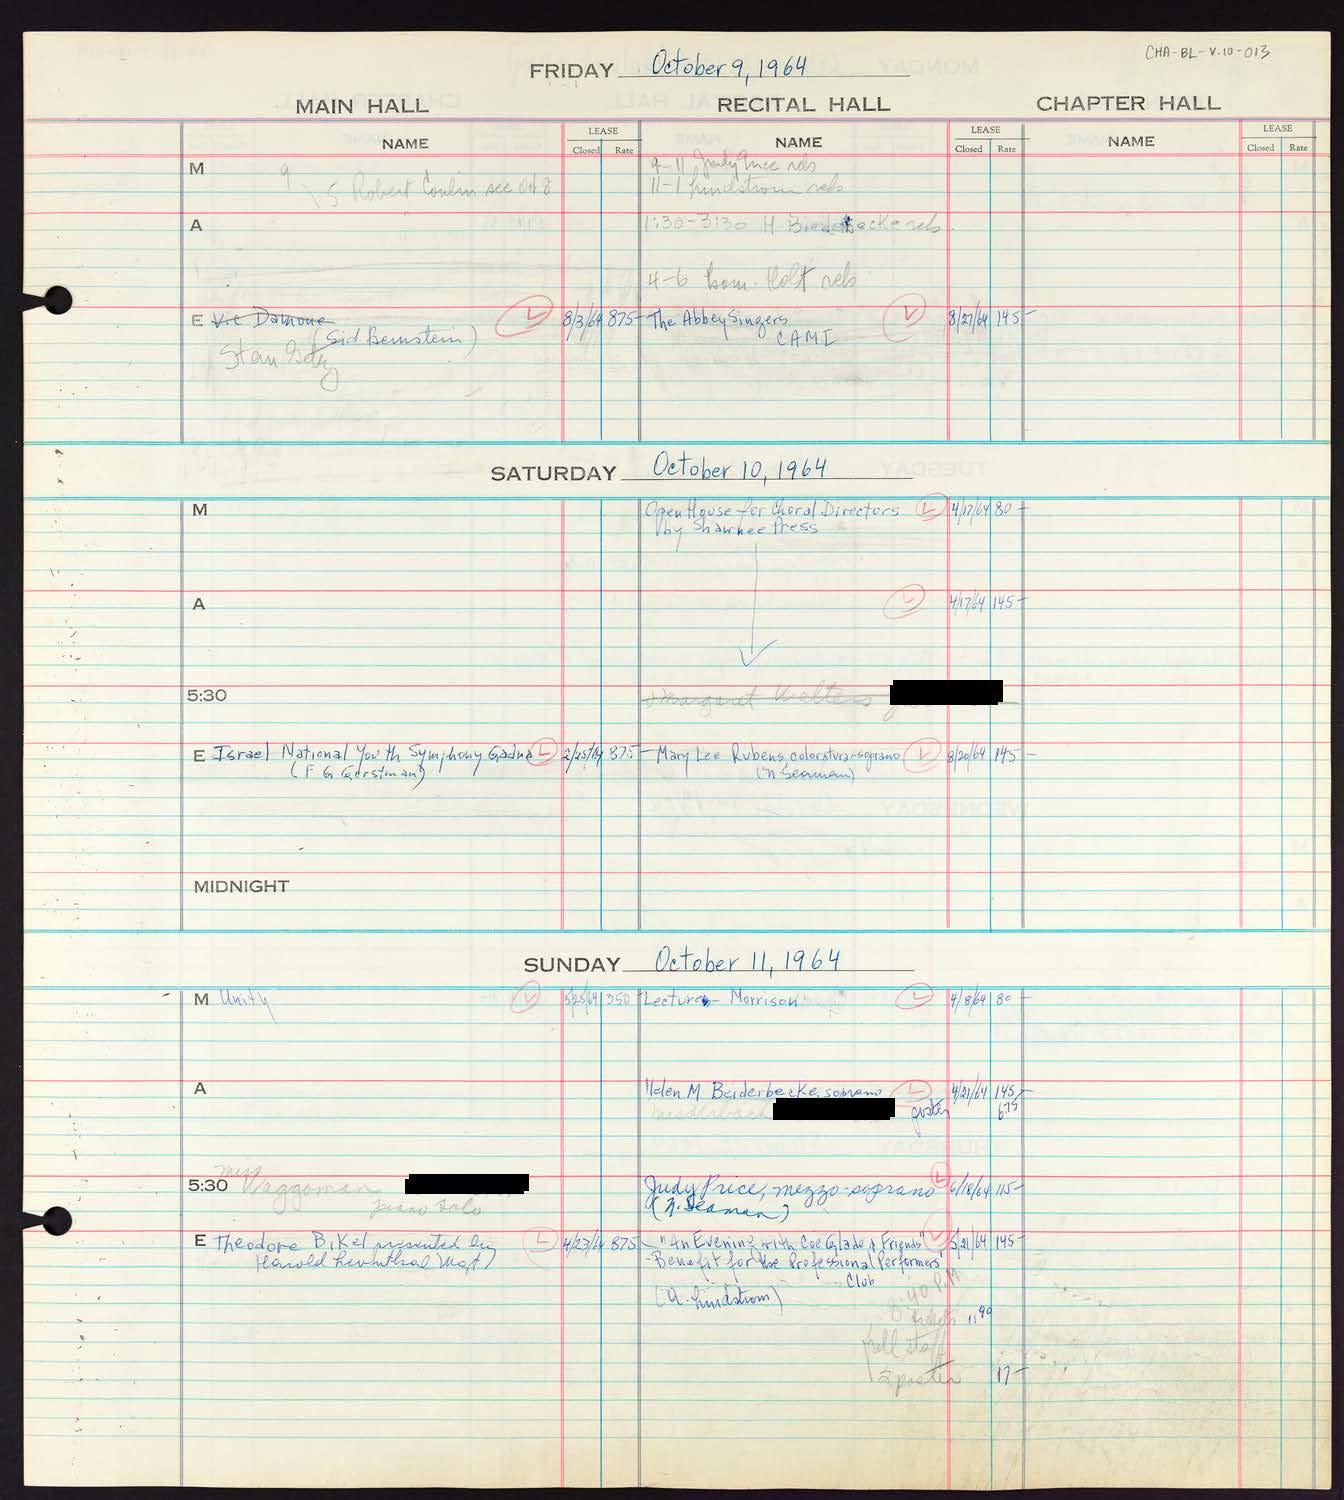 CHA-BL-V.10-013
FRIDAY October 9, 1964
MAIN HALL RECITAL HALL CHAPTER HALL
NAME LEASE Closed Rate NAME LEASE Closed Rate NAME LEASE Closed Rate
M 9 9-11 Judy Price rehs
5 Robert Conlin see Oct 8 11-1 Lindstrom rehs
A 1:30-3:30 H Biederbecke rehs
4-6 Holt rehs
E Vic Damone L 8/3/64 875- The Abbey Singers L 8/27/64 145-
(Sid Bernstein) CAMI
Stan Getz
SATURDAY October 10, 1964
M Open House for Choral Directors L 4/17/64 80-
by Shawnee Press
A L 4/17/64 145-
5:30 Margaret Walters
E Israel National Youth Symphony Gadna L 2/25/64 875- Mary Lee Rubens, coloratura-soprano L 8/20/64 145-
(F G Gerstman) (N Seaman)
MIDNIGHT
SUNDAY October 11, 1964
M Unity L 5/25/64 350 Lecture - Morrison L 4/8/64 80-
A Helen M Beiderbecke, soprano L 4/21/64 145-
poster 675
Miss
5:30 Waggoman Judy Price, mezzo-soprano L 6/18/64 115-
piano solo (N. Seaman)
E Theodore Bikel presented by L 4/23/64 875- "An Evening with Coe Glade & Friends" L 5/21/64 145-
Harold Leventhal Mgt) Benefit for the Professional Performers'
Club
(A. Lindstrom) 8:40 P.M.
tickets 11.90
full staff
2 poster 17-